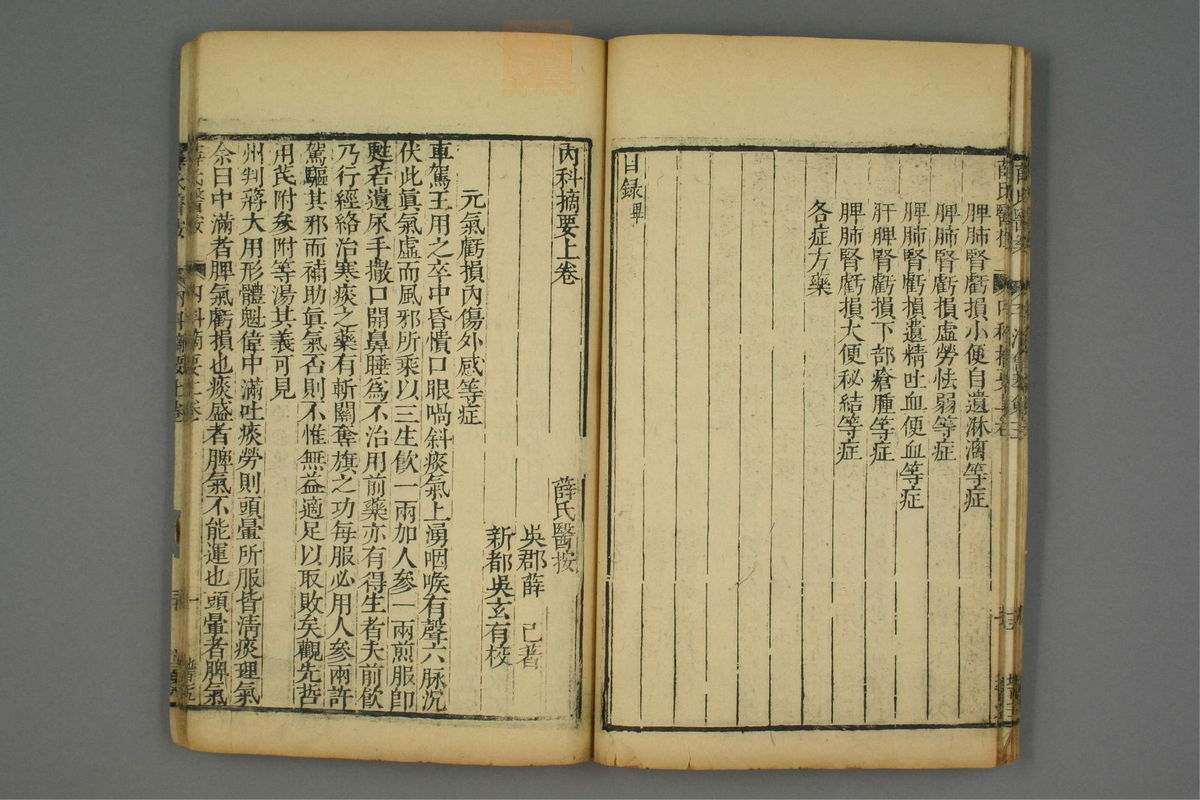 脾肺腎虧損小便自遺淋濇等症
脾肺腎虧損虛勞怯弱等症
脾肺腎虧損遺精吐血便血等症
肝脾腎虧損下部瘡腫等症
脾肺腎虧損大便秘結等症
各症方藥
目録畢
內科摘要上卷
薛氏醫按
吳郡薛 己著
新都吳玄有校
元氣虧損內傷外感等症
車駕王用之卒中昏憒口眼喎斜痰氣上湧咽喉有聲六脉沉
伏此眞氣虛而風邪所乘以三生飲一兩加人參一兩煎服卽
甦若遺尿手撒口開鼻鼾爲不治用前藥亦有得生者夫前飲
乃行經絡治寒痰之藥有斬關奪旗之功每服必用人參兩許
駕驅其邪而補助眞氣否則不惟無益適足以取敗矣觀先哲
用芪附參附等湯其義可見
州判蔣大用形體魁偉中滿吐痰勞則頭暈所服皆清痰理氣
余曰中滿者脾氣虧損也痰盛者脾氣不能運也頭暈者脾氣
薛氏醫按 內科摘要上卷 一